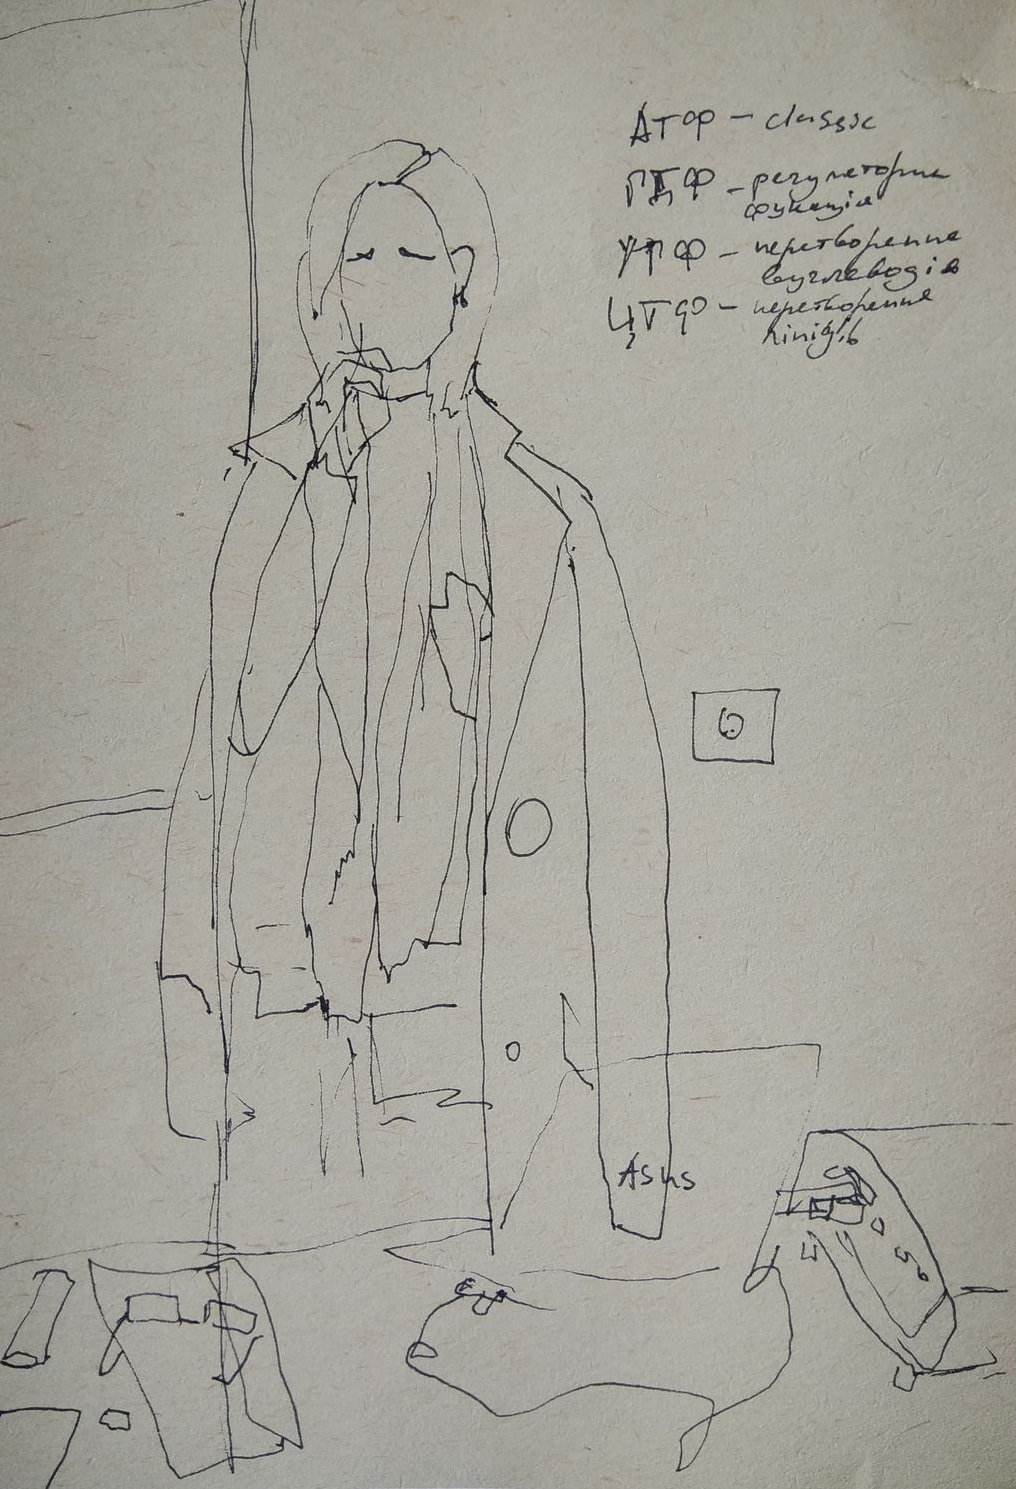 АТФ – classic
ГТФ – регуляторна
функція
УТФ – перетворення
вуглеводів
ЦТФ – перетворення
ліпідів
Asus